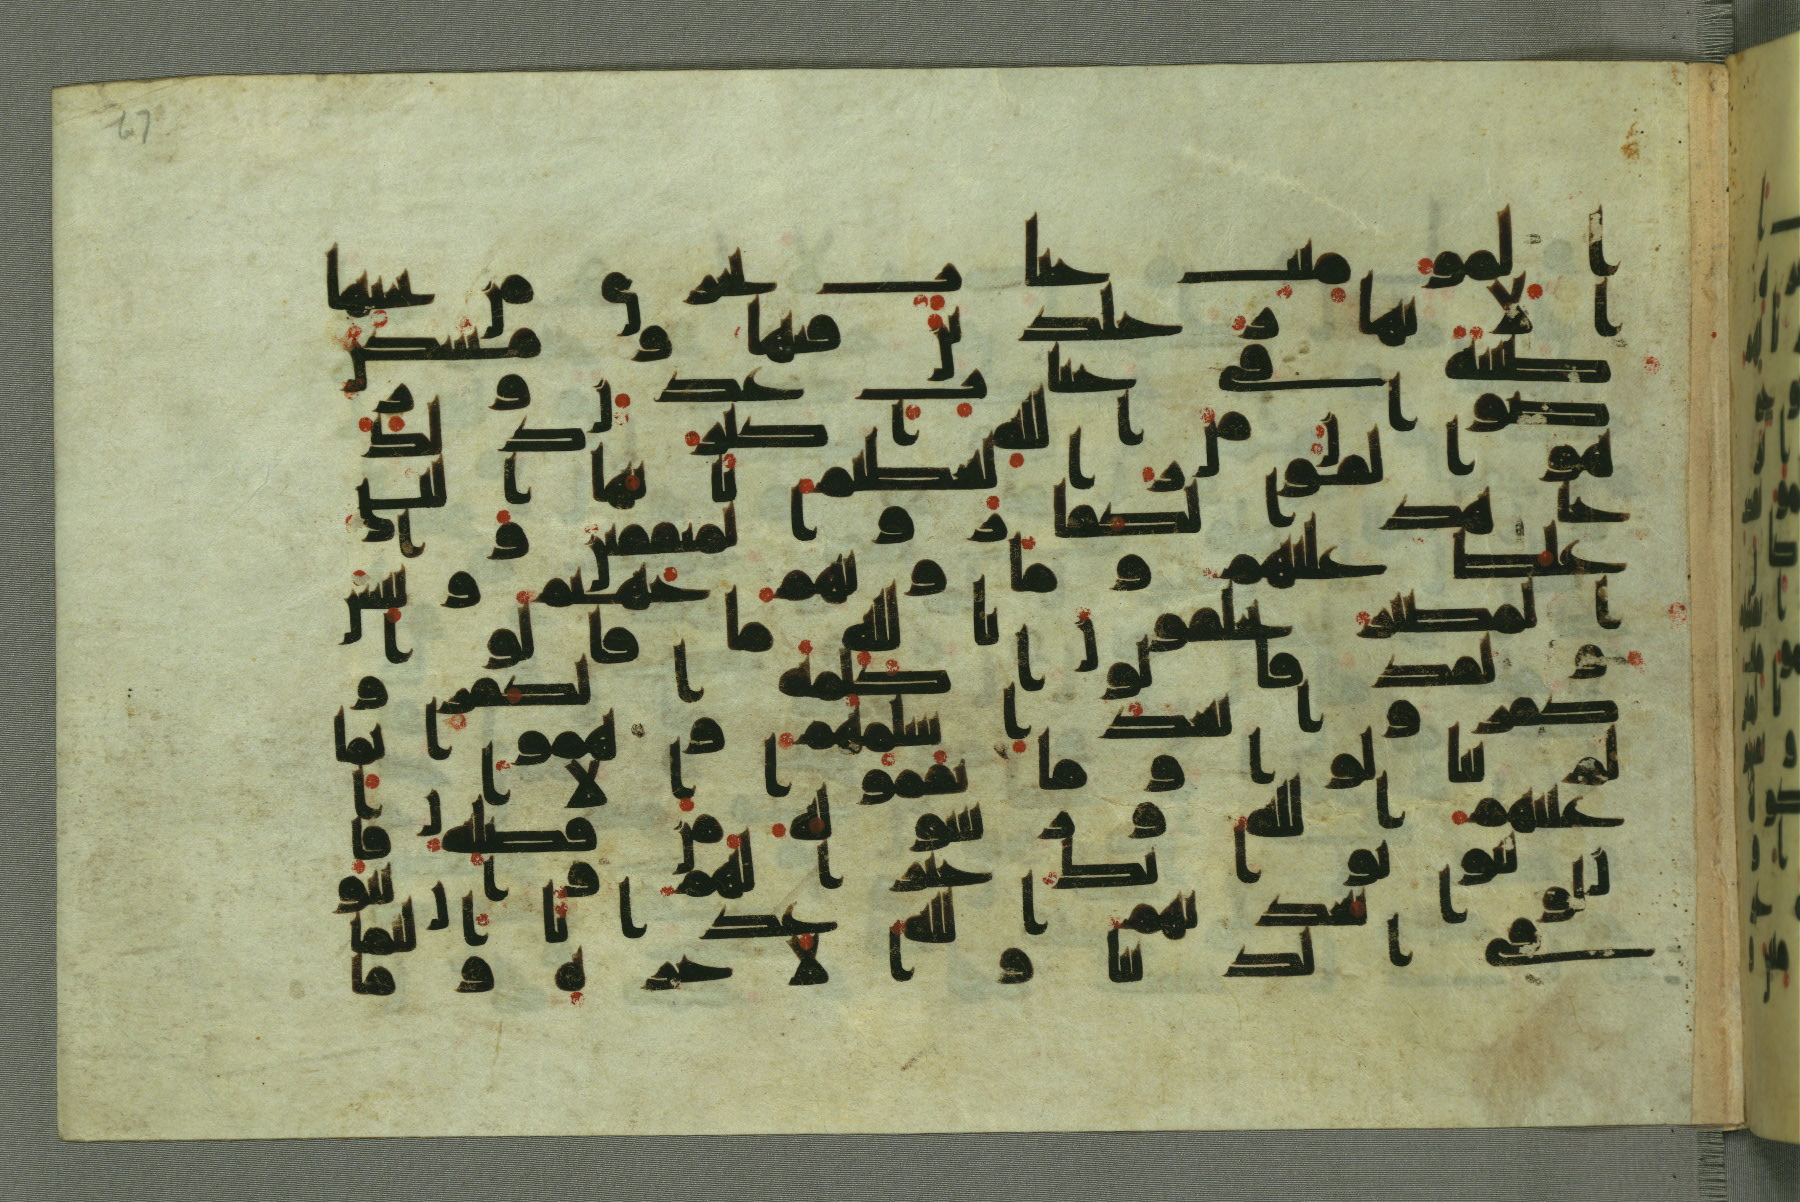 المومنت جنت تجري من تحتها
الانهر خلدين فيها ومسكن
طيبة في جنت عدن ور
ضون من الله اكبر ذلك
هو الفوز العظيم يايها النبي
جهد الكفار والمنفقين وا
غلظ عليهم وماويهم جهنم وبئس
المصير يحلفون بالله ما قالوا
ولقد قالوا كلمة الكفر و
كفروا بعد اسلمهم وهموا بما
لم ينالوا وما نقموا الا ان ا
غنيهم الله ورسوله من فضله فا
ن يتوبوا يك خيرا لهم وان يتو
لوا يعذبهم الله عذابا اليما
في الدنيا والاخرة وما
67